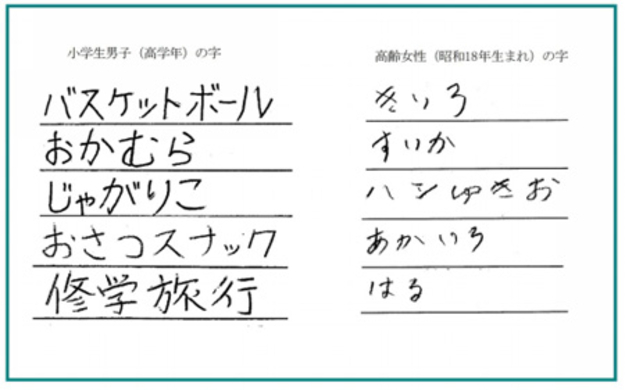 小学生男子（高学年）の字
バスケットボール
おかむら
じゃがりこ
おさつスナック
修学旅行
高齢女性（昭和18年生まれ）の字
きいろ
すいか
ハシゆきお
あかいろ
はる